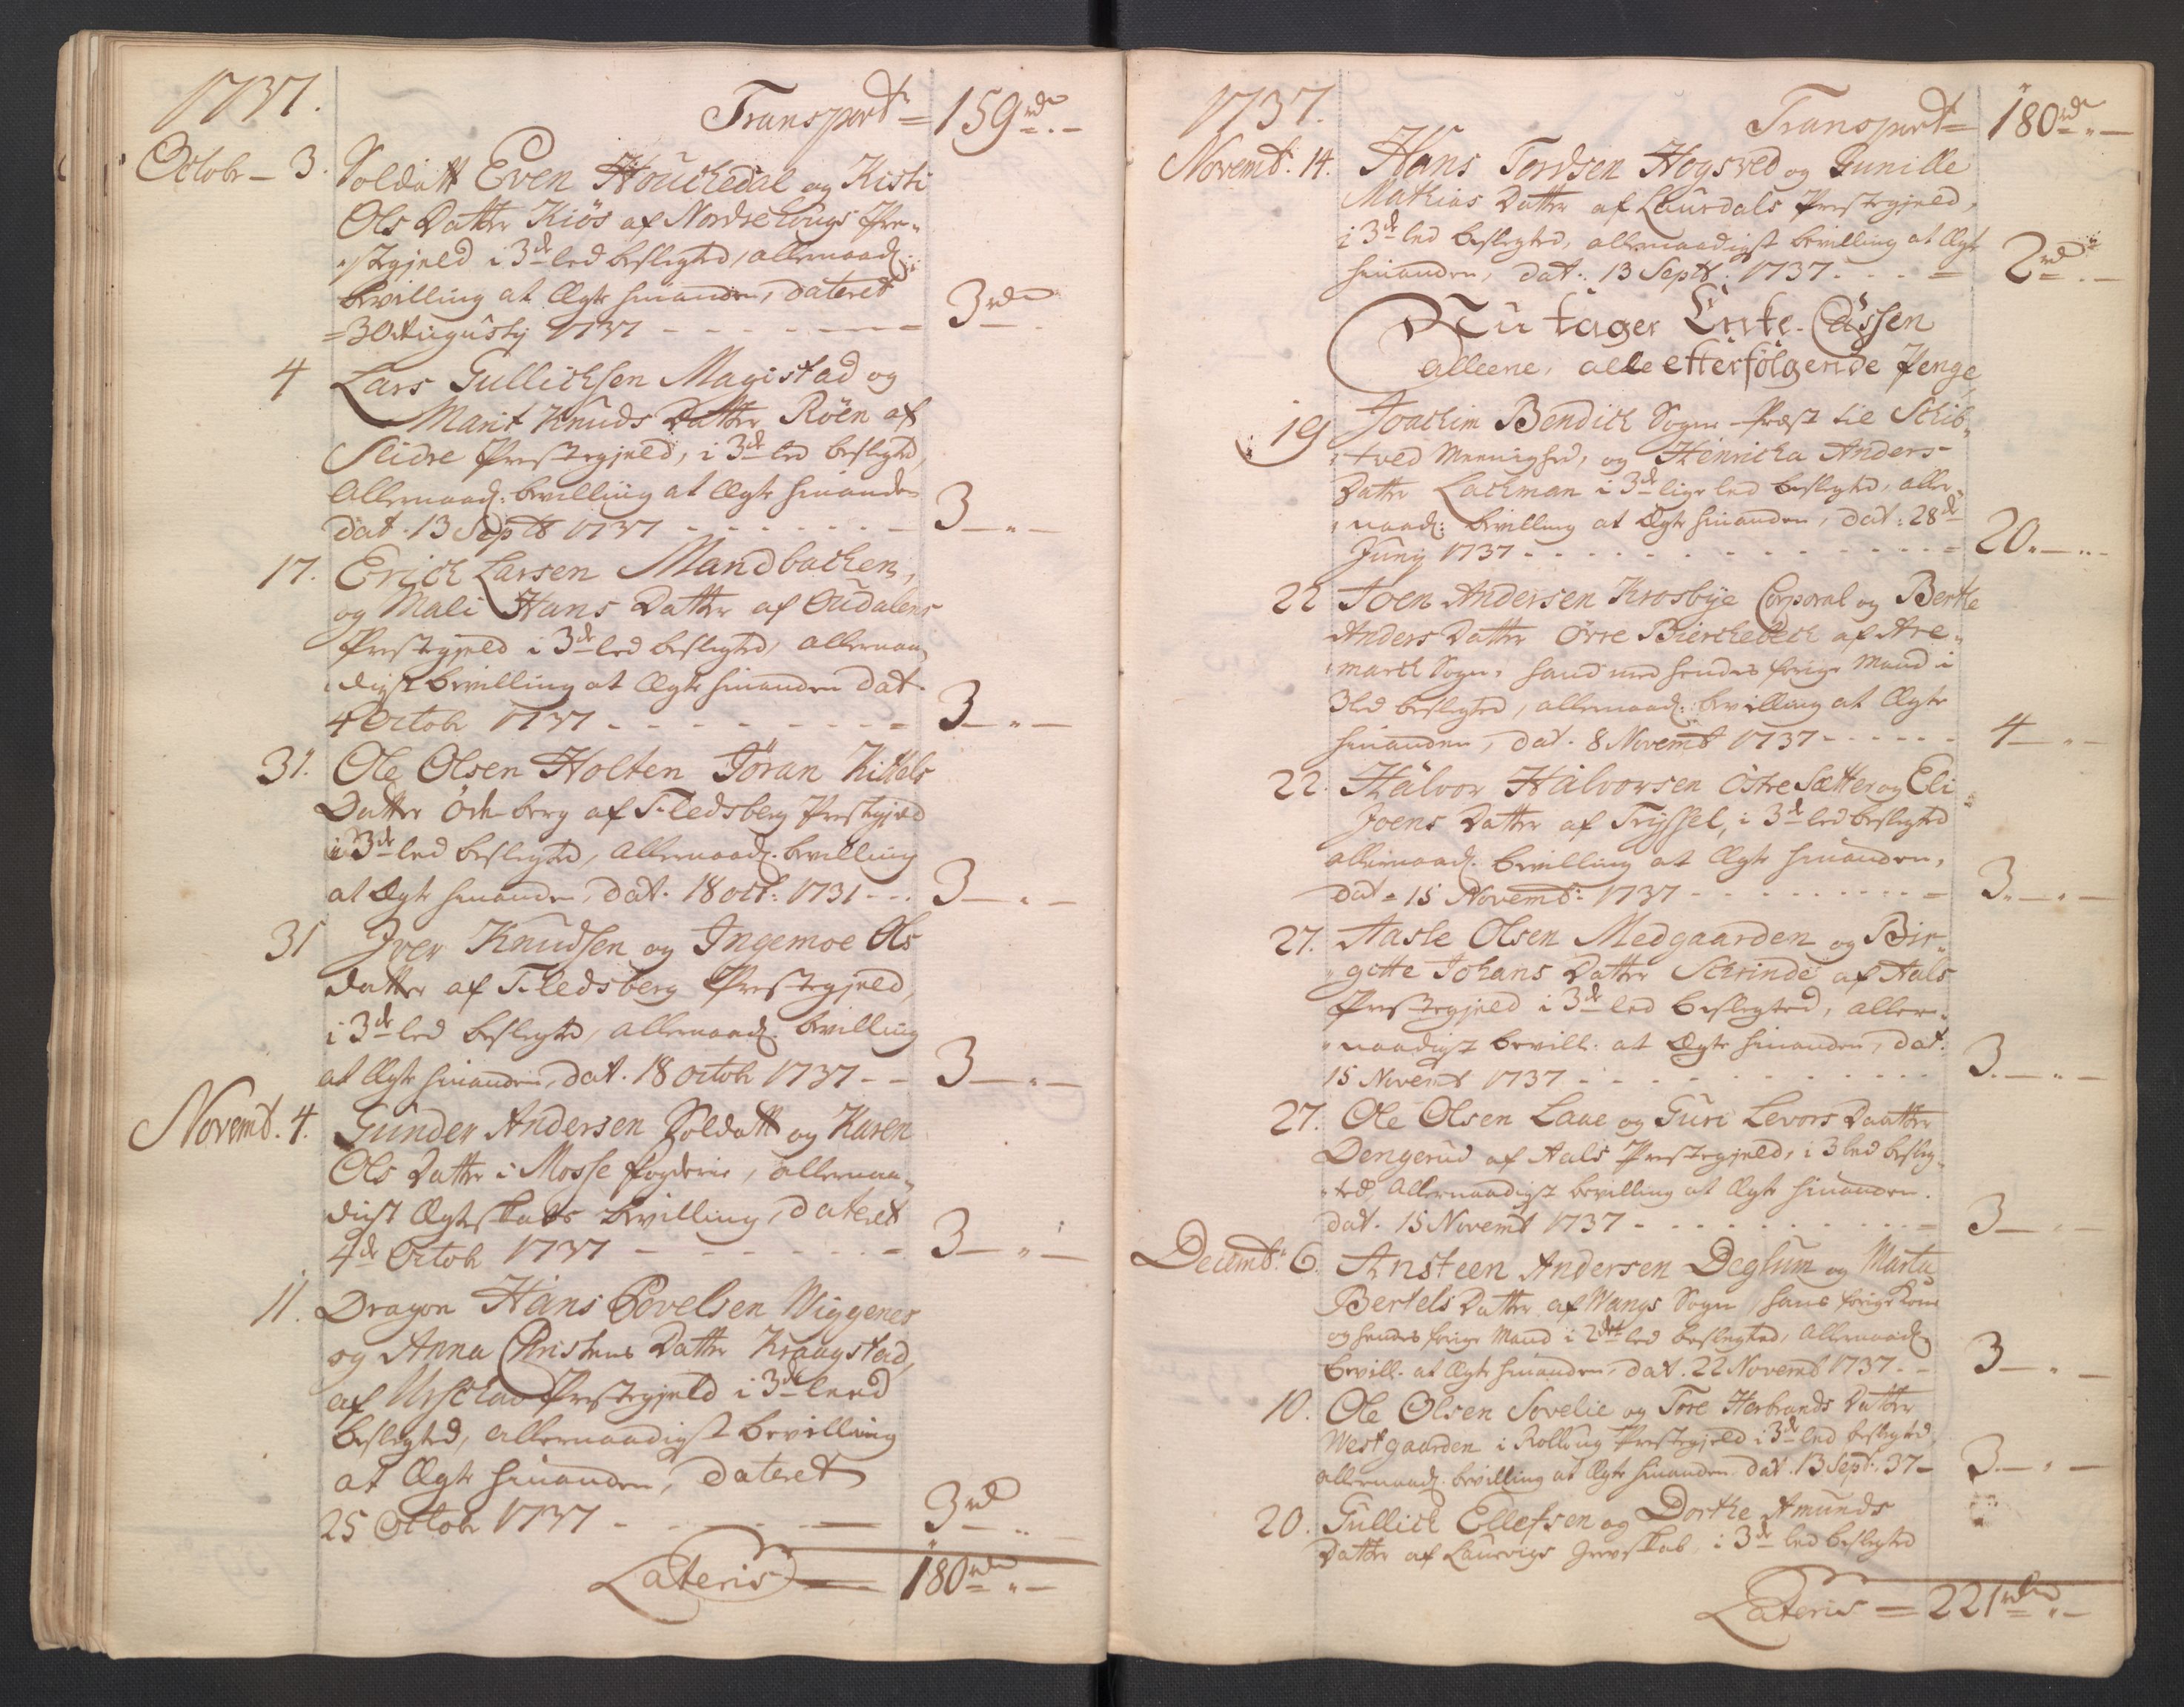 1737.
Transport = 159 rd. –
Octobr – 3. Soldatt Even Houchedal og Kisti
Ols Datter Kiös af Nordrehougs Præ-
stegjeld i 3de led beslegted, allernaad:
bevilling at Ægte hinanden, dateret
30 Augusty 1737 – – – 3 rd
4 Lars Gullichsen Magistad og
Marit Knuds Datter Röen af
Slidre Præstegjeld, i 3de led beslegted,
Allernaad: bevilling at Ægte hinanden
dat. 13 Septb 1737 – – – 3 – " –
17. Erich Larsen Mandbachen,
og Mali Hans Datter af Oudalens
Præstegjeld i 3de led beslegted, allernaa-
digst bevilling at Ægte hinanden dat.
4 Octobr 1737 – – – 3 – " –
31. Ole Olsen Holten Jöran Kittels
Datter berg af Fledsberg Prestegjeld
i 3de led beslegted, Allernaad. bevilling
at Ægte hinanden, dat. 18 oct: 1731 – – 3 – " –
31 Iver Knudsen og Ingemoe Ols
datter af Fledsberg Præstegjeld,
i 3de led beslegted, Allernaad. bevilling
at Ægte hinanden, dat. 18 octobr 1737 – – 3 – " –
Novemb. 4. Gunder Andersen Soldatt og Karen
Ols Datter i Mosse fogderie, allernaa-
digst Ægteskabs bevilling, dateret
4de Octobr 1737 – – – 3 – " –
11. Dragon Hans Povelsen Wiggenes
og Anna Christens Datter Kraagstad,
af Urschou Præstegjeld i 3de leed
beslegted, allernaadigst bevilling
at Ægte hinanden, dateret
25 Octobr 1737 – – – 3 rd
Lateris = 180 rd " –
1737.
Transport = 180 rd " –
Novemb. 14. Hans Tordsen Hogsved og Gunille
Mathias Datter af Laurdals Præstegjeld,
i 3de led beslegted, allernaadigst bevilling at Ægte
hinanden, dat. 13 Septb. 1737 – – – 2 rd " –
Nu tager Enke-Cassen
alleene, alle efterfölgende Penge
19 Joachim Bendich Sogne-Præst til Schib-
tved Meenighed, og Hinricka Anders-
Datter Lachman i 3de lige led beslegted, aller-
naad: bevilling at Ægte hinanden, dat: 28de
Juny 1737 – – – 20. – " –
22 Joen Andersen Krosbye Corporal og Berthe
Anders Datter Örre Bierchebech af Are-
march Sogn, hand med hendes forige Mand i
3 led beslegted, allernaad: bevilling at Ægte
hinanden, dat. 8 Novemb 1737 – – – 4 – " –
22. Halvor Halvorsen Östre Sætter og Eli
Joens Datter af Tryssel, i 3de led beslegted
allernaad. bevilling at Ægte hinanden,
dat = 15 Novemb: 1737 – – – 3. – " –
27. Aasle Olsen Medgaarden og Bir-
gitte Johans Datter Schrinde af Aals
Præstegjeld i 3de led beslegted, aller-
naadigst bevill: at Ægte hinanden, dat.
15 Novemb 1737 – – – 3. – " –
27. Ole Olsen Laae og Guri Levors Daatter
Dengerud af Aals Præstegjeld, i 3 led besleg-
ted, Allernaadigst bevilling at Ægte hinanden.
dat. 15 Novemb 1737 – – – 3 – " –
Decemb. 6. Ansteen Andersen Deglum og Marta
Bertels Datter af Wangs Sogn, hans forige Kone
og hendes forige Mand i 2det led beslegted, Allernaad
bevill. at Ægte hinanden, dat. 22 Novemb 1737 – – 3 – " –
10. Ole Olsen Sovelie og Tore Herbrands Datter
Westgaarden i Rolloug Præstegjeld i 3de led beslegted
allernaad. bevilling at Ægte hinanden dat. 13 Sept. 37 – 3. – " –
20. Gullich Ellefsen og Dorthe Amunds
Datter af Laurvigs Grevskab, i 3de led beslegted
Lateris = 221 rd " –